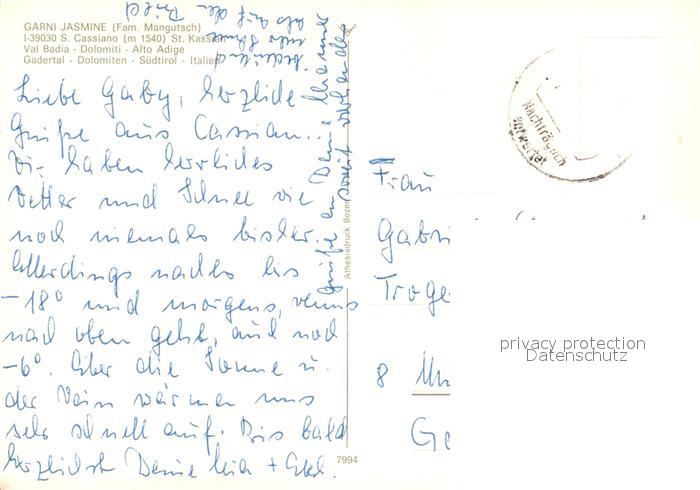 GARNI JASMINE (Fam. Mangutsch)
I-39030 S. Cassiano (m 1540) St. Kassian
Val Badia - Dolomiti - Alto Adige
Gadertal - Dolomiten - Südtirol - Italien
Liebe Gaby, herzliche
Grüße aus Cassian..
Wir haben herrliches
Wetter und Schnee wie
noch niemals bisher.
Allerdings nachts bis
-18° und morgens, wenns
nach oben geht, auch noch
-6°. Aber die Sonne u.
der Wein wärmen uns
sehr schnell auf. Bis bald
herzlichst Deine + 
Grüße an Deine
soweit vorhanden
als auf dem Bild
mehr Schnee
Athesiadruck Bozen
7994
Nachträglich
entwertet
Frau
Gabri
Troge
8 Mü
Ge
privacy protection
Datenschutz